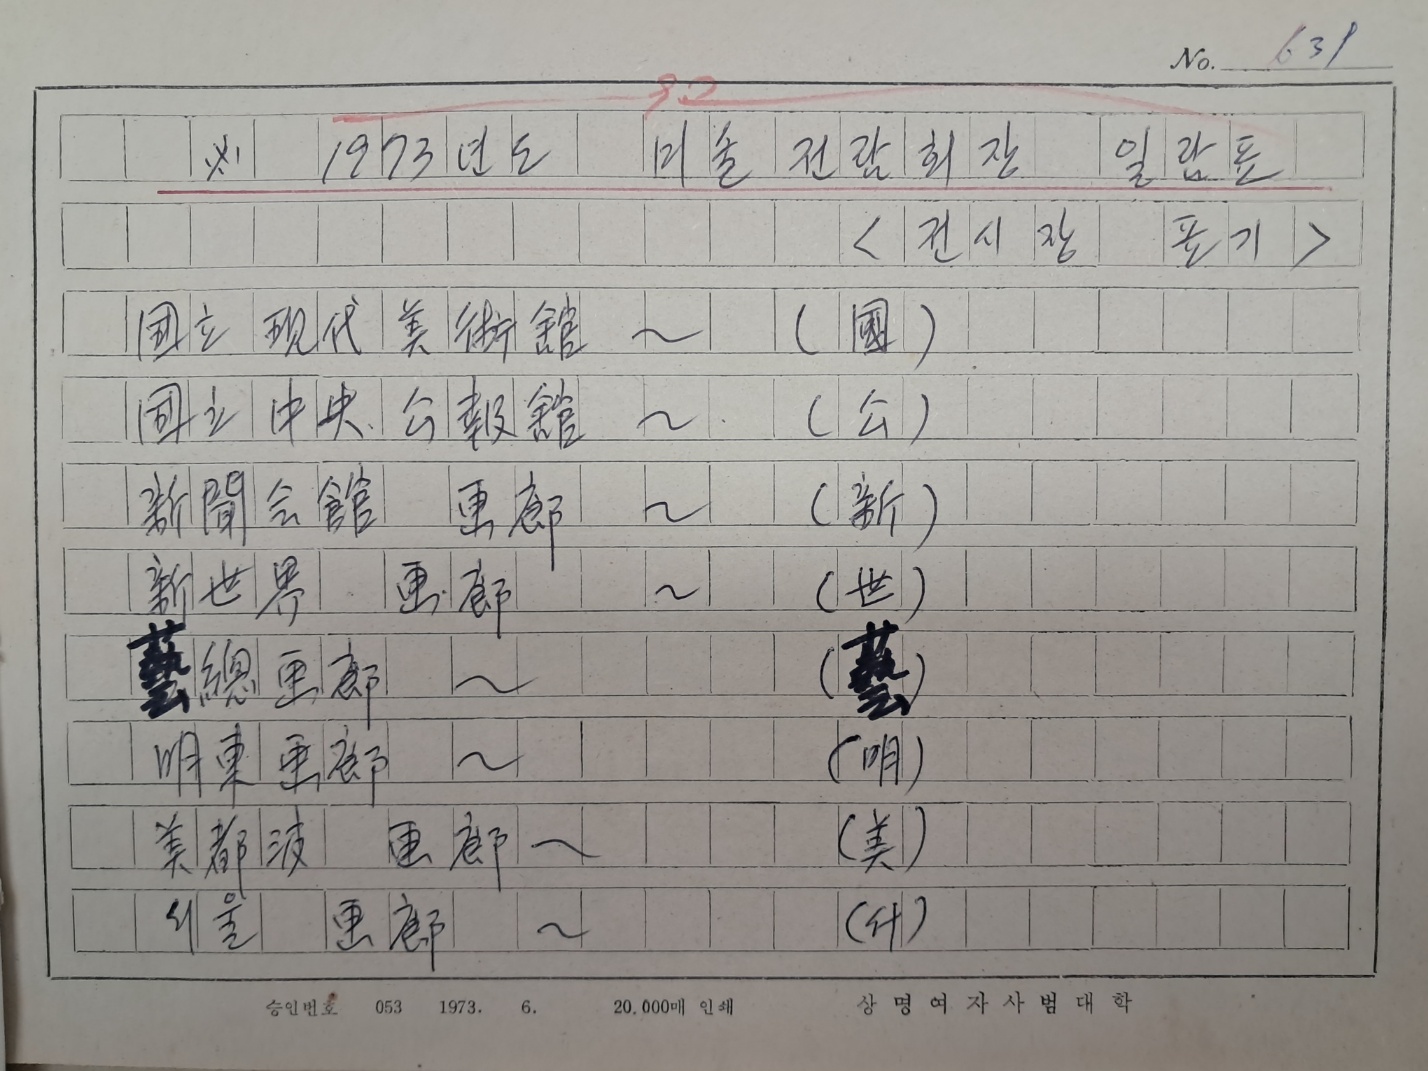 No. 631
※ 1973년도 미술 전람회장 일람표
< 전시장 표기 >
国立 現代 美術館 ~ (國)
国立 中央 公報館 ~ (公)
新聞会館 画廊 ~ (新)
新世界 画廊 ~ (世)
藝總画廊 ~ (藝)
明東画廊 ~ (明)
美都波 画廊 ~ (美)
서울 画廊 ~ (서)
승인번호 053 1973. 6. 20,000매 인쇄 상명여자사범대학